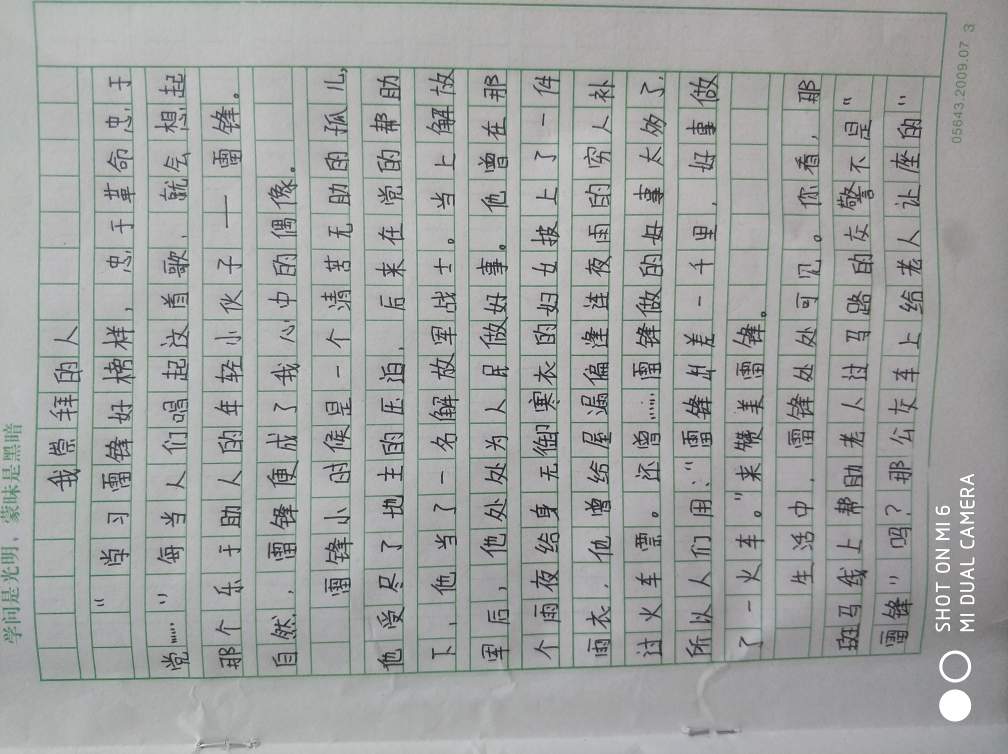 学问是光明，蒙昧是黑暗
我崇拜的人
“学习雷锋好榜样，忠于革命忠于
党……”每当人们唱起这首歌，就会想起
那个乐于助人的年轻小伙子——雷锋。
自然，雷锋便成了我心中的偶像。
雷锋小时候是一个清苦无助的孤儿，
他受尽了地主的压迫，后来在党的帮助
下，他当了一名解放军战士。当上解放
军后，他处处为人民做好事。他曾在那
个雨夜给身无御寒衣的妇女披上了一件
雨衣，他曾给屋漏偏逢连夜雨的穷人补
过火车票。还曾……雷锋做的好事太多了，
所以人们用：“雷锋出差一千里，好事做
了一火车。”来赞美雷锋。
生活中，雷锋处处可见。你看，那
斑马线上帮助老人过马路的女警不是“
雷锋”吗？那公交车上给老人让座的“
05643.2009.07 3
SHOT ON MI 6
MI DUAL CAMERA